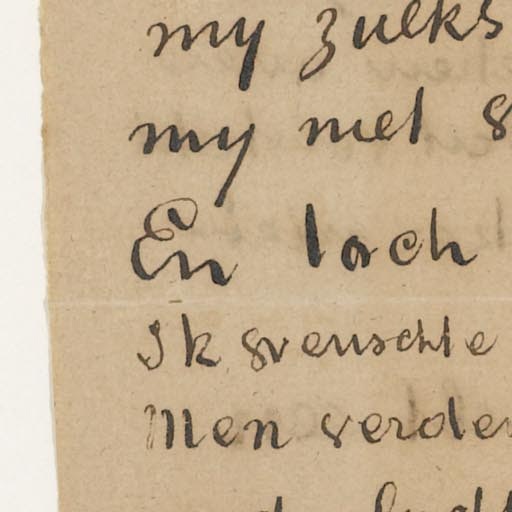 my zulks
my niet
En toch
Ik wenschte
Men verder